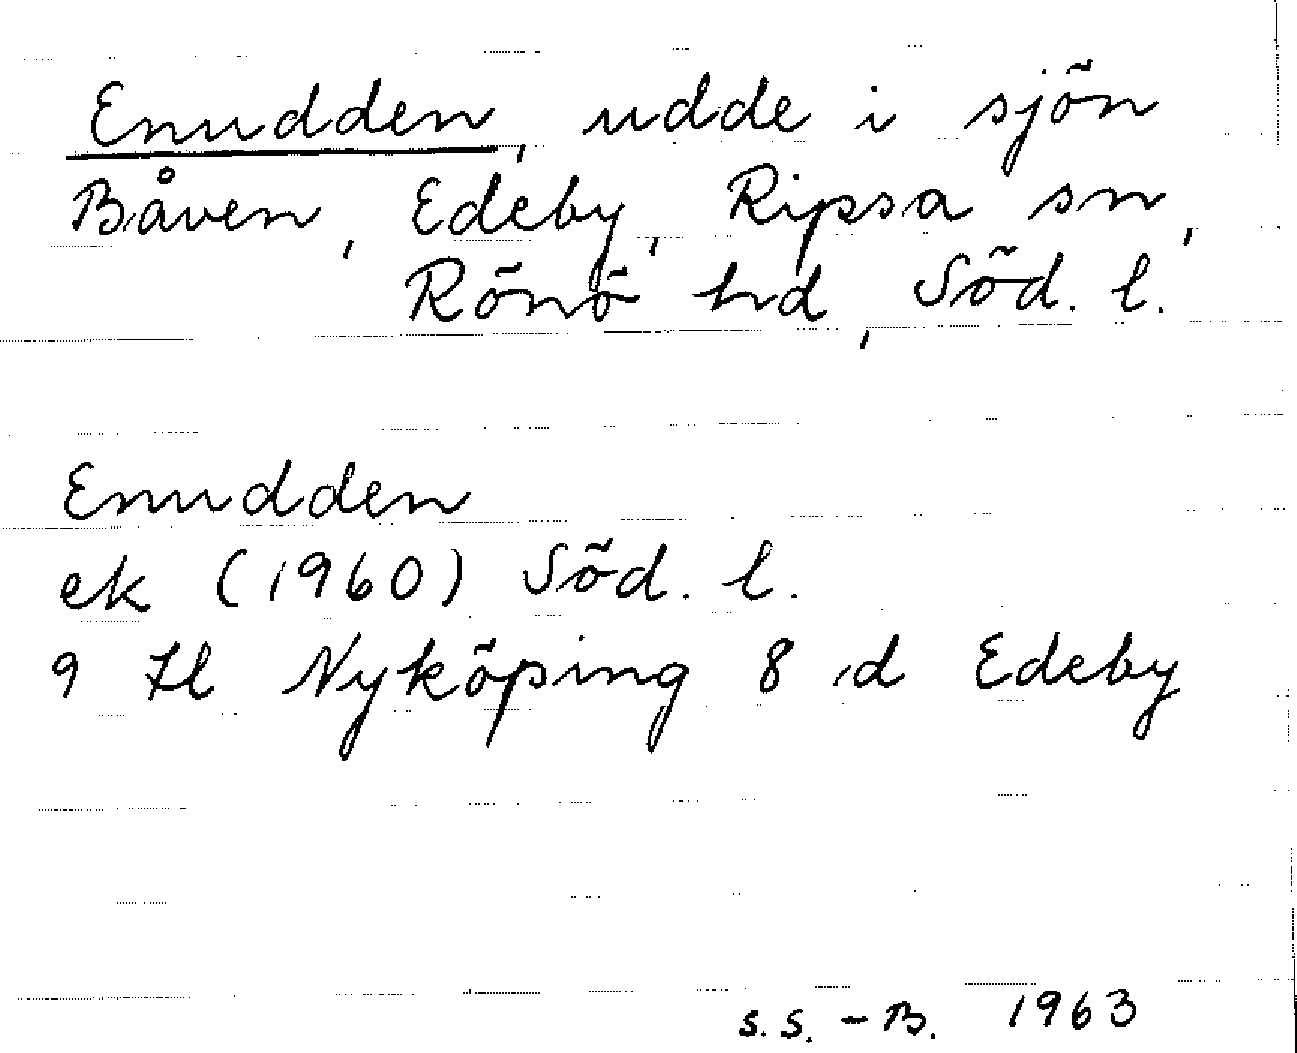 Enudden, udde i sjön
Båven, Edeby, Ripsa sn,
Rönö hd, Söd. l.
Enudden
ek (1960) Söd. l.
9 H Nyköping 8 d Edeby
S.S.-B. 1963